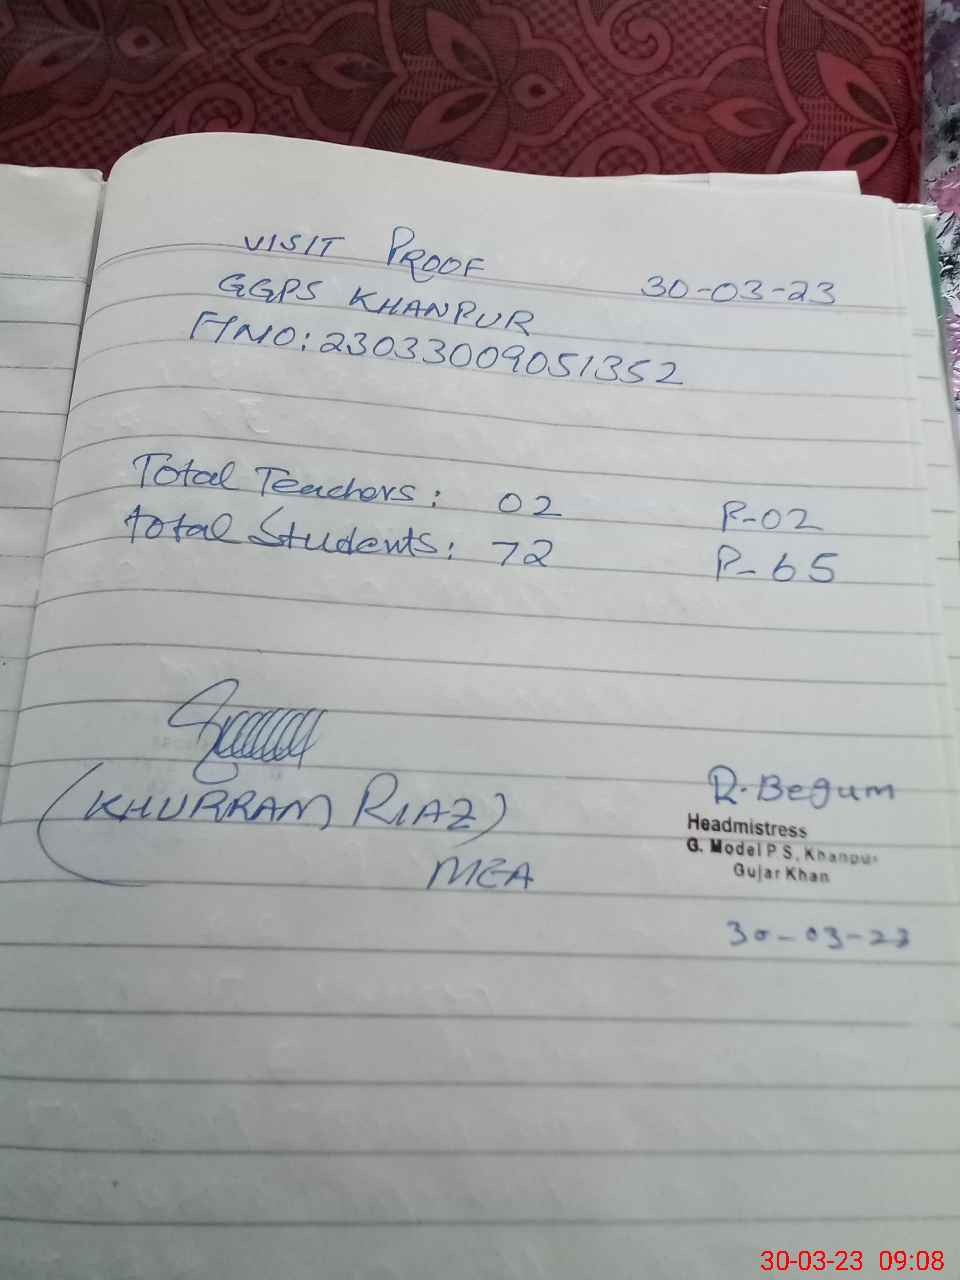 VISIT PROOF
30-03-23
GGPS KHANPUR
FTNO: 23033009051352
Total Teachers: 02 P-02
Total Students: 72 P-65
(KHURRAM RIAZ)
MEA
R. Begum
Headmistress
G. Model P S, Khanpur
Gujar Khan
30-03-23
30-03-23 09:08